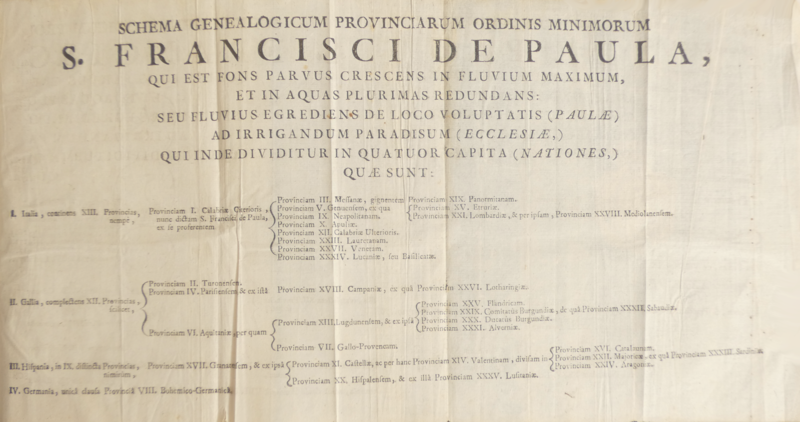 SCHEMA GENEALOGICUM PROVINCIARUM ORDINIS MINIMORUM
S. FRANCISCI DE PAULA,
QUI EST FONS PARVUS CRESCENS IN FLUVIUM MAXIMUM,
ET IN AQUAS PLURIMAS REDUNDANS:
SEU FLUVIUS EGREDIENS DE LOCO VOLUPTATIS (PAULÆ)
AD IRRIGANDUM PARADISUM (ECCLESIÆ,)
QUI INDE DIVIDITUR IN QUATUOR CAPITA (NATIONES,)
QUÆ SUNT:
I. Italia, continens XIII. Provincias, nempè,
Provinciam I. Calabriæ Citerioris,
nunc dictam S. Francisci de Paula,
ex se proferentem
Provinciam III. Messanæ, gignentem Provinciam XIX. Panormitanam.
Provinciam V. Genuensem, ex qua
Provinciam XV. Etruriæ.
Provinciam XXI. Lombardiæ, & per ipsam, Provinciam XXVIII. Mediolanensem.
Provinciam IX. Neapolitanam.
Provinciam X. Apuliæ.
Provinciam XII. Calabriæ Ulterioris.
Provinciam XXIII. Lauretanam.
Provinciam XXVII. Venetam.
Provinciam XXXIV. Lucaniæ, seu Basilicatæ.
II. Gallia, complectens XII. Provincias,
Provinciam II. Turonensem.
Provinciam IV. Parisiensem & ex illâ Provinciam XVIII. Campaniæ, ex quâ Provinciam XXVI. Lotharingiæ.
Provinciam VI. Aquitaniæ, per quam
Provinciam XIII. Lugdunensem, & ex ipsâ
Provinciam XXV. Flandricam.
Provinciam XXIX. Comitatûs Burgundiæ, de quâ Provinciam XXXII. Sabaudiæ.
Provinciam XXX. Ducatûs Burgundiæ.
Provinciam XXXI. Alverniæ.
Provinciam VII. Gallo-Provincem.
III. Hispania, in IX. distincta Provincias, nimirum,
Provinciam XVII. Granatensem, & ex ipsâ
Provinciam XI. Castellæ, ac per hanc Provinciam XIV. Valentinam, divisam in
Provinciam XVI. Catalaunam.
Provinciam XXII. Majoricæ, ex quâ Provinciam XXXIII. Sardiniæ.
Provinciam XXIV. Aragoniæ.
Provinciam XX. Hispalensem, & ex illâ Provinciam XXXV. Lusitaniæ.
IV. Germania, unicâ clausa Provinciâ VIII. Bohemico-Germanicâ.